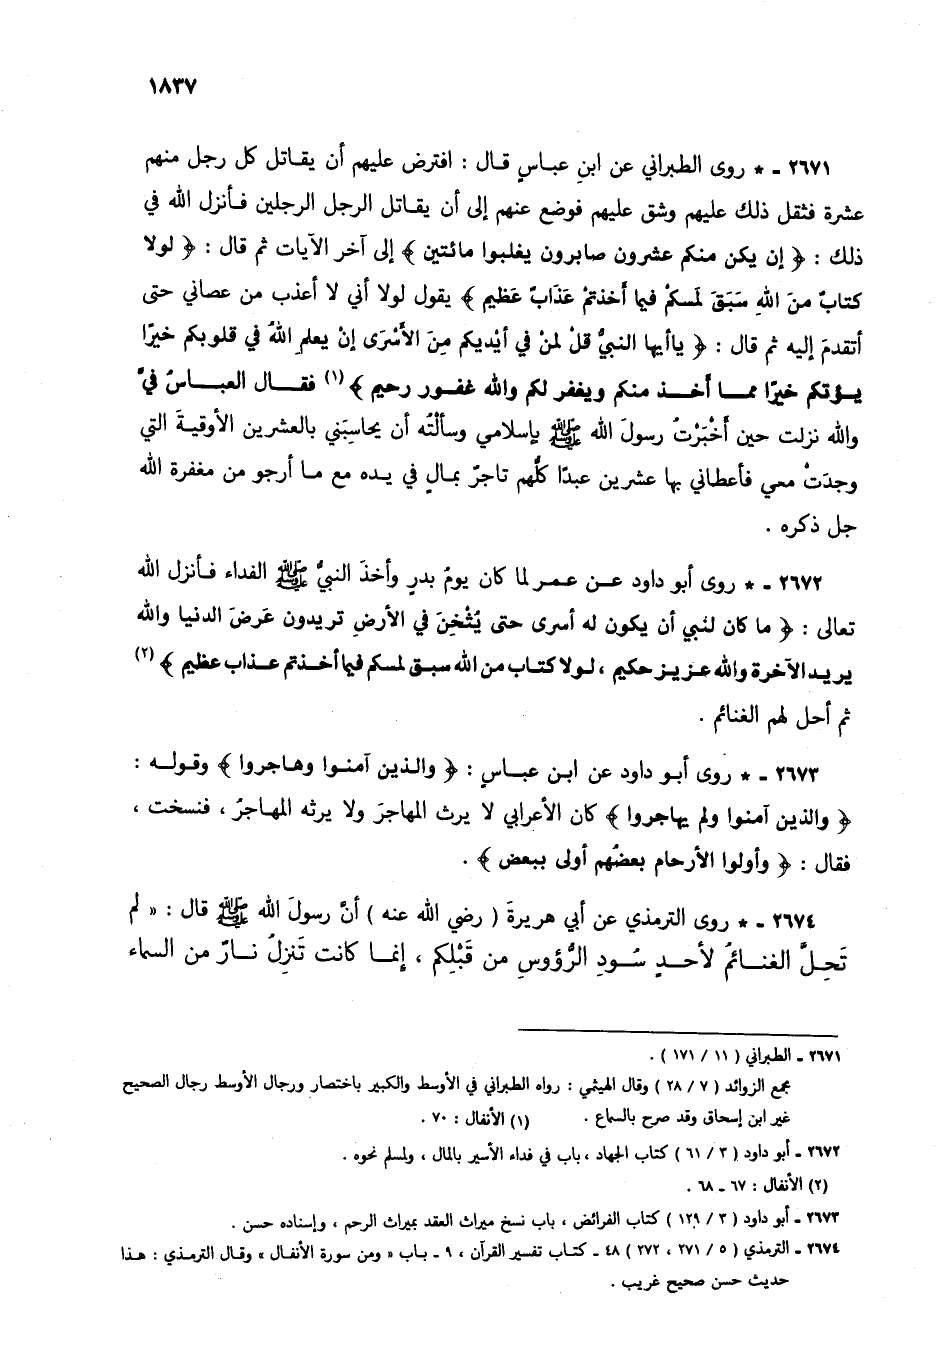 ١٨٣٧
٢٦٧١ - * روى الطبراني عن ابنِ عباسٍ قال : افترض عليهم أن يقاتل كل رجل منهم
عشرة فثقل ذلك عليهم وشق عليهم فوضع عنهم إلى أن يقاتل الرجل الرجلين فأنزل الله في
ذلك : ﴿ إن يكن منكم عشرون صابرون يغلبوا مائتين ﴾ إلى آخر الآيات ثم قال : ﴿ لولا
كتابٌ منَ اللهِ سَبَقَ لَمسكمْ فيما أَخذتمْ عَذَابٌ عَظيم ﴾ يقول لولا أني لا أعذب من عصاني حتى
أتقدمَ إليه ثم قال : ﴿ ياأيها النبيُّ قلْ لمنْ في أيْديكم مِنَ الأَسْرَى إنْ يعلمِ اللهُ في قلوبكم خيرًا
يؤتكم خيرًا مما أخذ منكم ويغفر لكم والله غفور رحيم ﴾(١) فقال العباسُ فيَّ
والله نزلت حين أَخْبَرْتُ رسولَ الله ﷺ بإسلامي وسألْتُه أن يحاسِبَني بالعشرين الأوقيةَ التي
وجدَتْ معي فأعطاني بها عشرين عبدًا كلُّهم تاجرٌ بمالٍ في يده مع ما أرجو من مغفرة الله
جل ذكره .
٢٦٧٢ - * روى أبو داود عن عمر لما كان يومُ بدرٍ وأخذَ النبيُّ ﷺ الفداء فأنزل الله
تعالى : ﴿ ما كان لنبي أن يكون له أسرى حتى يُثْخِنَ في الأرضِ تريدون عَرضَ الدنيا والله
يريد الآخرة والله عزيز حكيم ، لولا كتاب من الله سبق لمسكم فيما أخذتم عذاب عظيم ﴾ (٢)
ثم أحل لهم الغنائم .
٢٦٧٣ - * روى أبو داود عن ابن عباسٍ : ﴿ والذين آمنوا وهاجروا ﴾ وقوله :
﴿ والذين آمنوا ولم يهاجروا ﴾ كان الأعرابي لا يرث المهاجرَ ولا يرثه المهاجرُ ، فنسخت ،
فقال : ﴿ وأولوا الأرحام بعضُهم أولى ببعض ﴾ .
٢٦٧٤ - * روى الترمذي عن أبي هريرةَ ( رضي الله عنه ) أنَّ رسولَ الله ﷺ قال : « لم
تَحِلَّ الغنائمُ لأحدٍ سُودِ الرُّؤوسِ من قَبْلِكم ، إنما كانت تَنزِلُ نارٌ من السماء
٢٦٧١ - الطبراني ( ١١ / ١٧١ ) .
مجمع الزوائد ( ٧ / ٢٨ ) وقال الهيثمي : رواه الطبراني في الأوسط والكبير باختصار ورجال الأوسط رجال الصحيح
غير ابن إسحاق وقد صرح بالسماع . (١) الأنفال : ٧٠ .
٢٦٧٢ - أبو داود ( ٣ / ٦١ ) كتاب الجهاد ، باب في فداء الأسير بالمال ، ولمسلم نحوه .
(٢) الأنفال : ٦٧ - ٦٨ .
٢٦٧٣ - أبو داود ( ٣ / ١٢٩ ) كتاب الفرائض ، باب نسخ ميراث العقد بميراث الرحم ، وإسناده حسن .
٢٦٧٤ - الترمذي ( ٥ / ٢٧١ ، ٢٧٢ ) ٤٨ - كتاب تفسير القرآن ، ٩ - باب « ومن سورة الأنفال » وقال الترمذي : هذا
حديث حسن صحيح غريب .